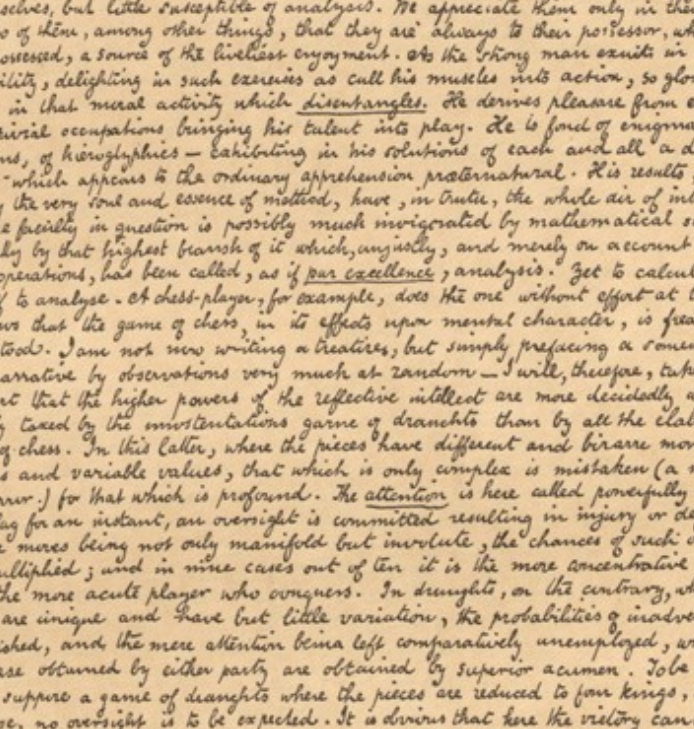 selves, but little susceptible of analysis. We appreciate them only in the
of them, among other things, that they are always to their possessor, wh
ossessed, a source of the liveliest enjoyment. As the strong man exults in
ility, delighting in such exercises as call his muscles into action, so glo
in that moral activity which disentangles. He derives pleasure from
rivial occupations bringing his talent into play. He is fond of enigma
ns, of hieroglyphics — exhibiting in his solutions of each and all a
which appears to the ordinary apprehension præternatural. His results,
the very soul and essence of method, have, in truth, the whole air of in
e faculty in question is possibly much invigorated by mathematical s
lly by that highest branch of it which, unjustly, and merely on account
operations, has been called, as if par excellence, analysis. Yet to calcul
f to analyse. A chess-player, for example, does the one without effort at
ws that the game of chess, in its effects upon mental character, is frea
tood. I am not now writing a treatise, but simply prefacing a some
arrative by observations very much at random — I will, therefore, tak
rt that the higher powers of the reflective intellect are more decidedly
y taxed by the unostentatious game of draughts than by all the ela
of chess. In this latter, where the pieces have different and bizarre mo
s and variable values, that which is only complex is mistaken (a
rror.) for that which is profound. The attention is here called powerfully
lag for an instant, an oversight is committed resulting in injury or de
e moves being not only manifold but involute, the chances of such
ultiplied; and in nine cases out of ten it is the more concentrative
the more acute player who conquers. In draughts, on the contrary, wh
are unique and have but little variation, the probabilities of inadve
ished, and the mere attention being left comparatively unemployed, w
ase obtained by either party are obtained by superior acumen. To be
suppose a game of draughts where the pieces are reduced to four kings,
se, no oversight is to be expected. It is obvious that here the victory can